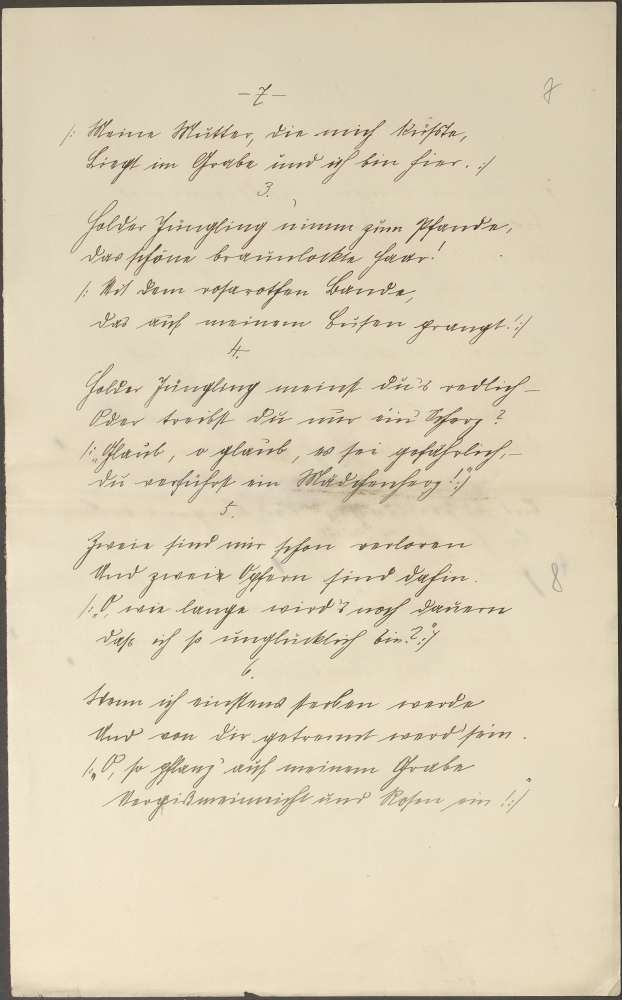 -7-
7
/: Meine Mutter, die mich küßte,
Liegt im Grabe und ich bin hier. :/
3.
Holder Jüngling nimm zum Pfande,
das schöne braunlockte Haar!
/: Mit dem rosarothen Bande,
das auf meinem Busen prangt! :/
4.
Holder Jüngling meinst du's redlich –
Oder treibst du nur ein' Scherz?
/: „Glaub, o glaub, es sei gefährlich, –
du verführst ein Mädchenherz!" :/
5.
Zweie sind mir schon verloren
Und zweie Opfern sind dahin.
8
/: „O, wie lange wird's noch dauern
daß ich so unglücklich bin?" :/
6.
Wenn ich einstens sterben werde
Und von dir getrennt werd' sein.
/: „O, so pflanz' auf meinem Grabe
Vergißmeinnicht und Rosen ein!" :/